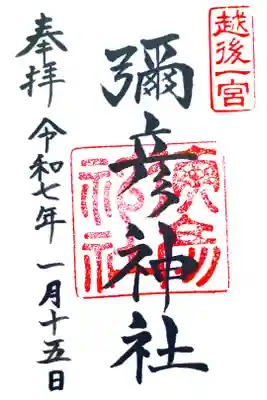 越後一宮
彌彦神社
奉拝
令和七年 一月十五日